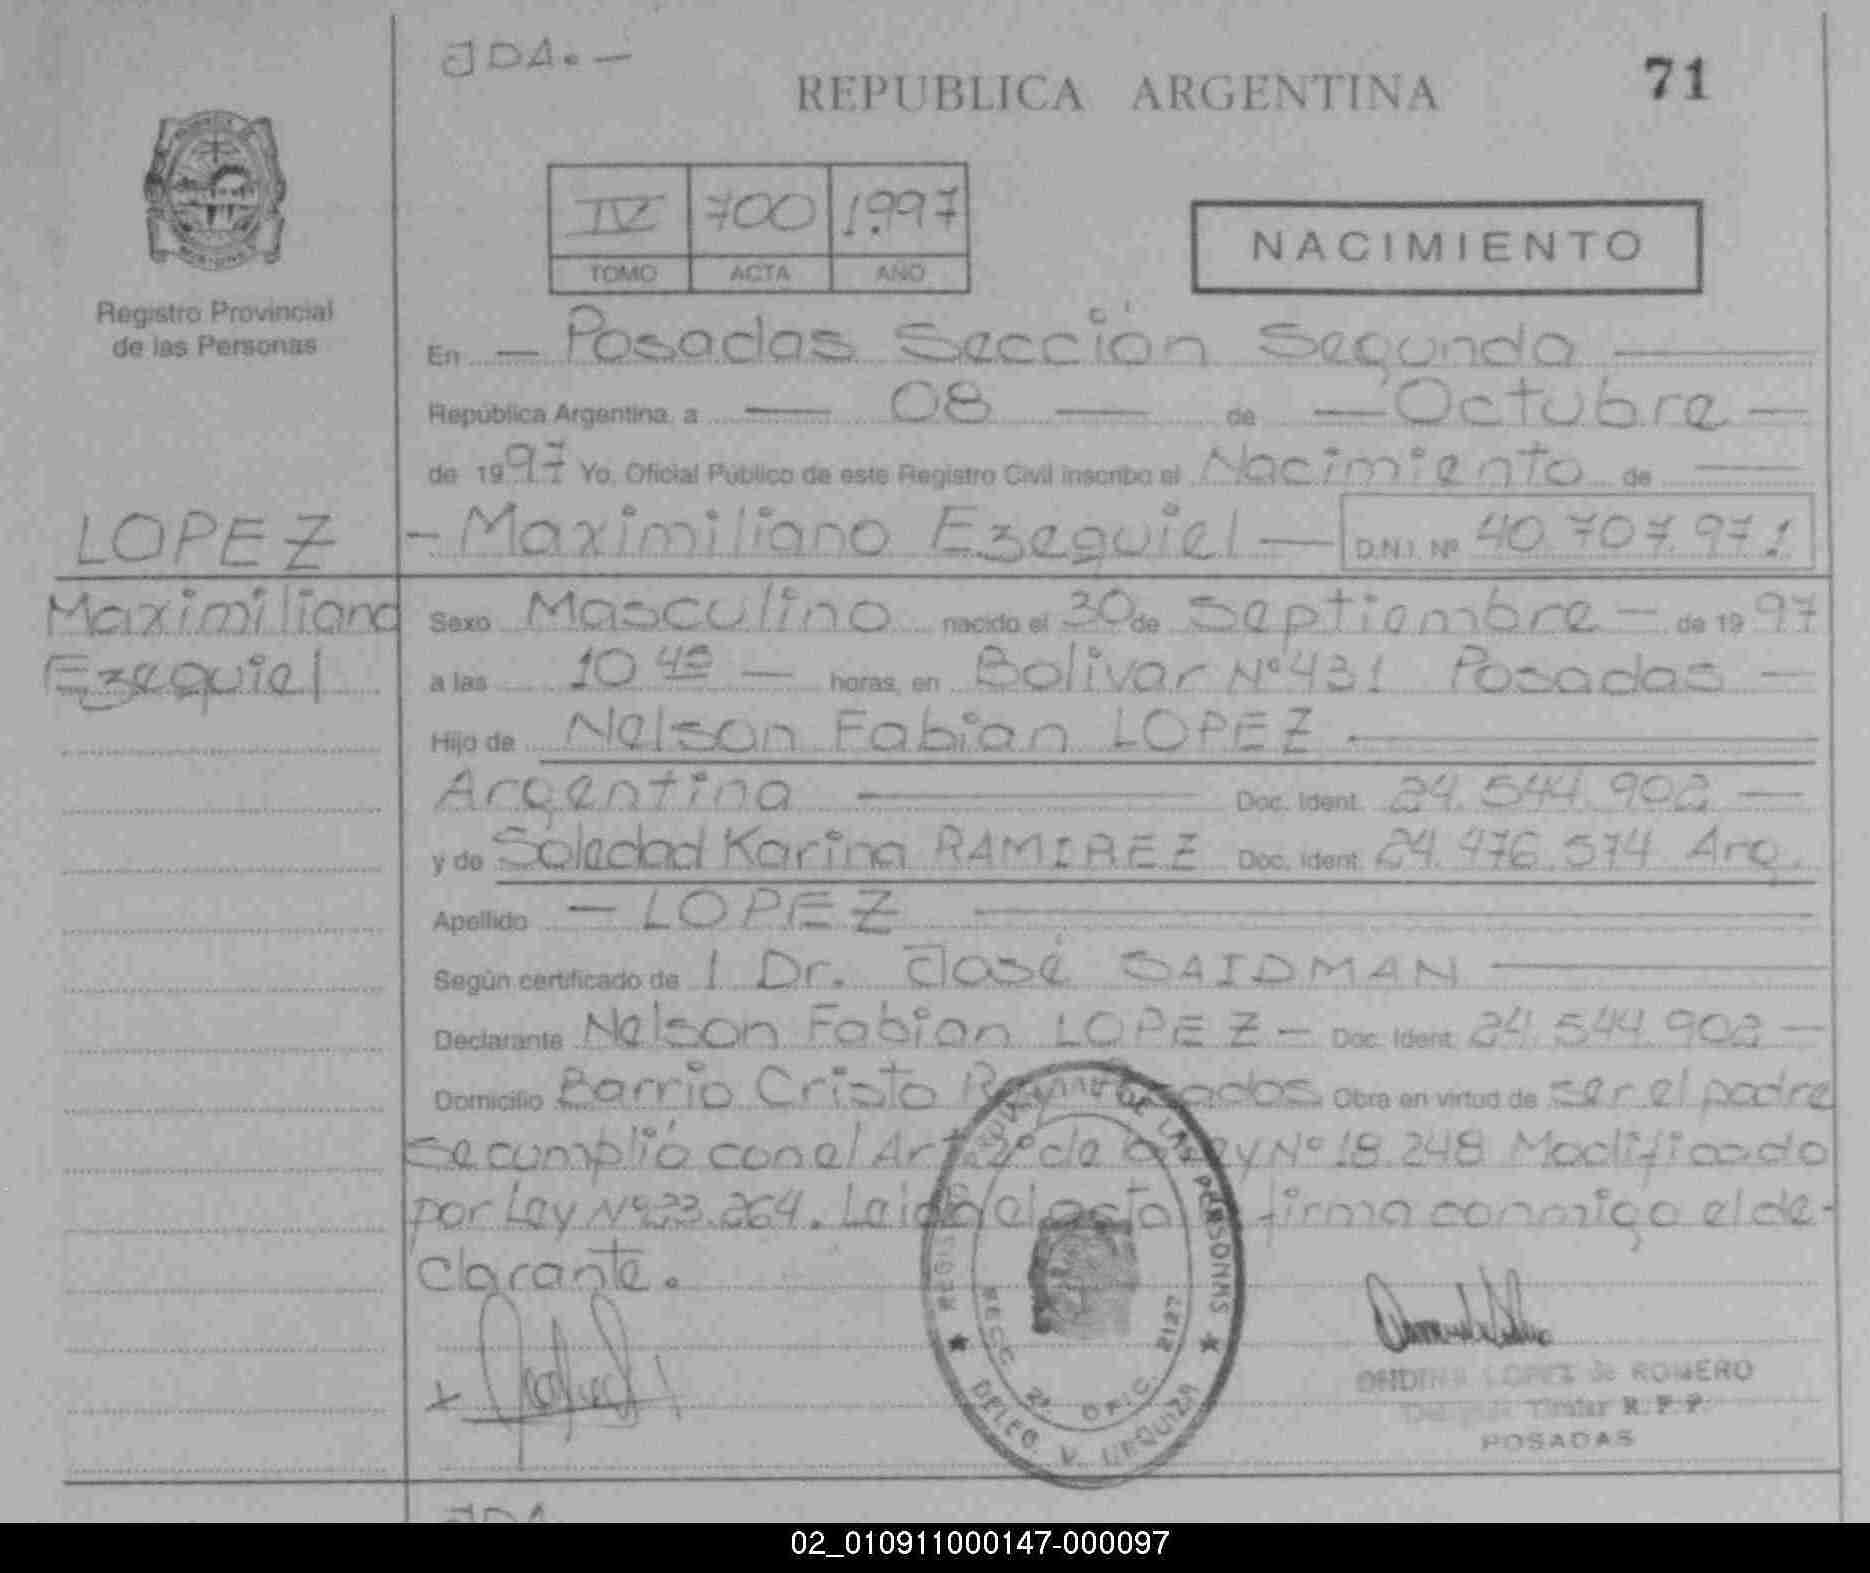 JDA.-
REPUBLICA ARGENTINA
71
IV 700 1.997
TOMO ACTA AÑO
NACIMIENTO
Registro Provincial
de las Personas
En — Posadas Sección Segunda —
República Argentina, a — 08 — de — Octubre —
de 1997 Yo, Oficial Público de este Registro Civil inscribo el Nacimiento de —
LOPEZ - Maximiliano Ezequiel — D.N.I. Nº 40.707.971
Maximiliano
Ezequiel
Sexo Masculino nacido el 30 de Septiembre — de 1997
a las 10 45 — horas, en Bolivar Nº 431 Posadas —
Hijo de Nelson Fabian LOPEZ —
Argentina — Doc. Ident. 24.544.902 —
y de Soledad Karina RAMIREZ Doc. Ident. 24.476.574 Arg.
Apellido — LOPEZ —
Según certificado de 1 Dr. José SAIDMAN —
Declarante Nelson Fabian LOPEZ — Doc. Ident. 24.544.902 —
Domicilio Barrio Cristo Rey Posadas Obra en virtud de ser el padre
Se cumplió con el Art 2º de la Ley Nº 18.248 Modificado
por Ley Nº 23.264. Leida el acta firma conmigo el de-
clarante.
REGISTRO DE LAS PERSONAS
SECC. 2ª OFIC. 2127
DELEG. V. URQUIZA
ONDINA LOPEZ de ROMERO
Titular R.P.P.
POSADAS
JDA.
02_010911000147-000097